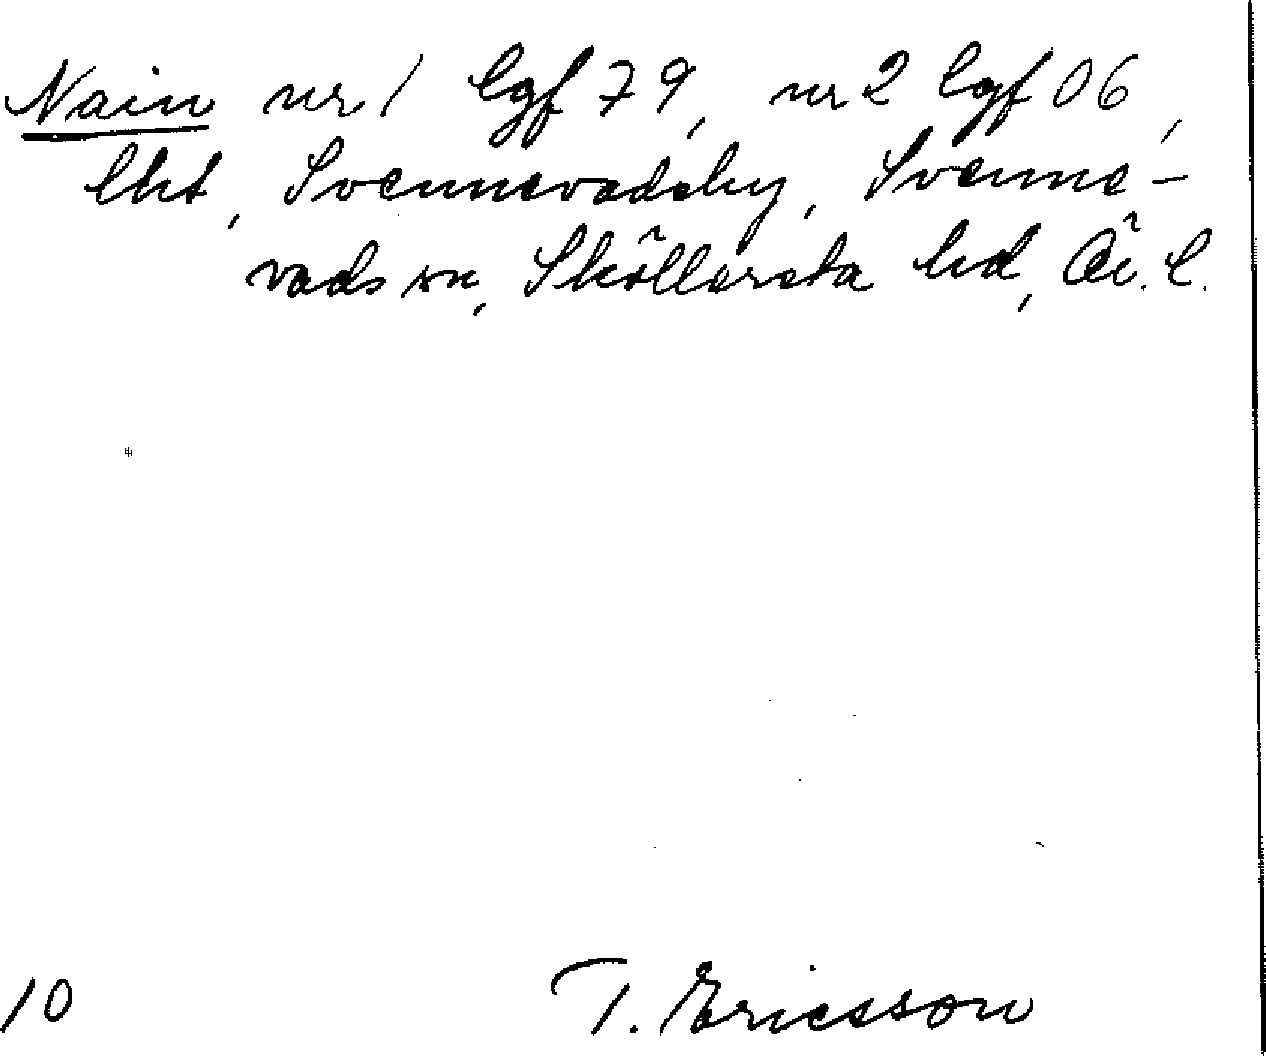 Nain nr 1 lgf 79, nr 2 lgf 06,
lht, Svennevadsby, Svenne-
vads sn, Sköllersta hd, Ör. l.
10 T. Ericsson